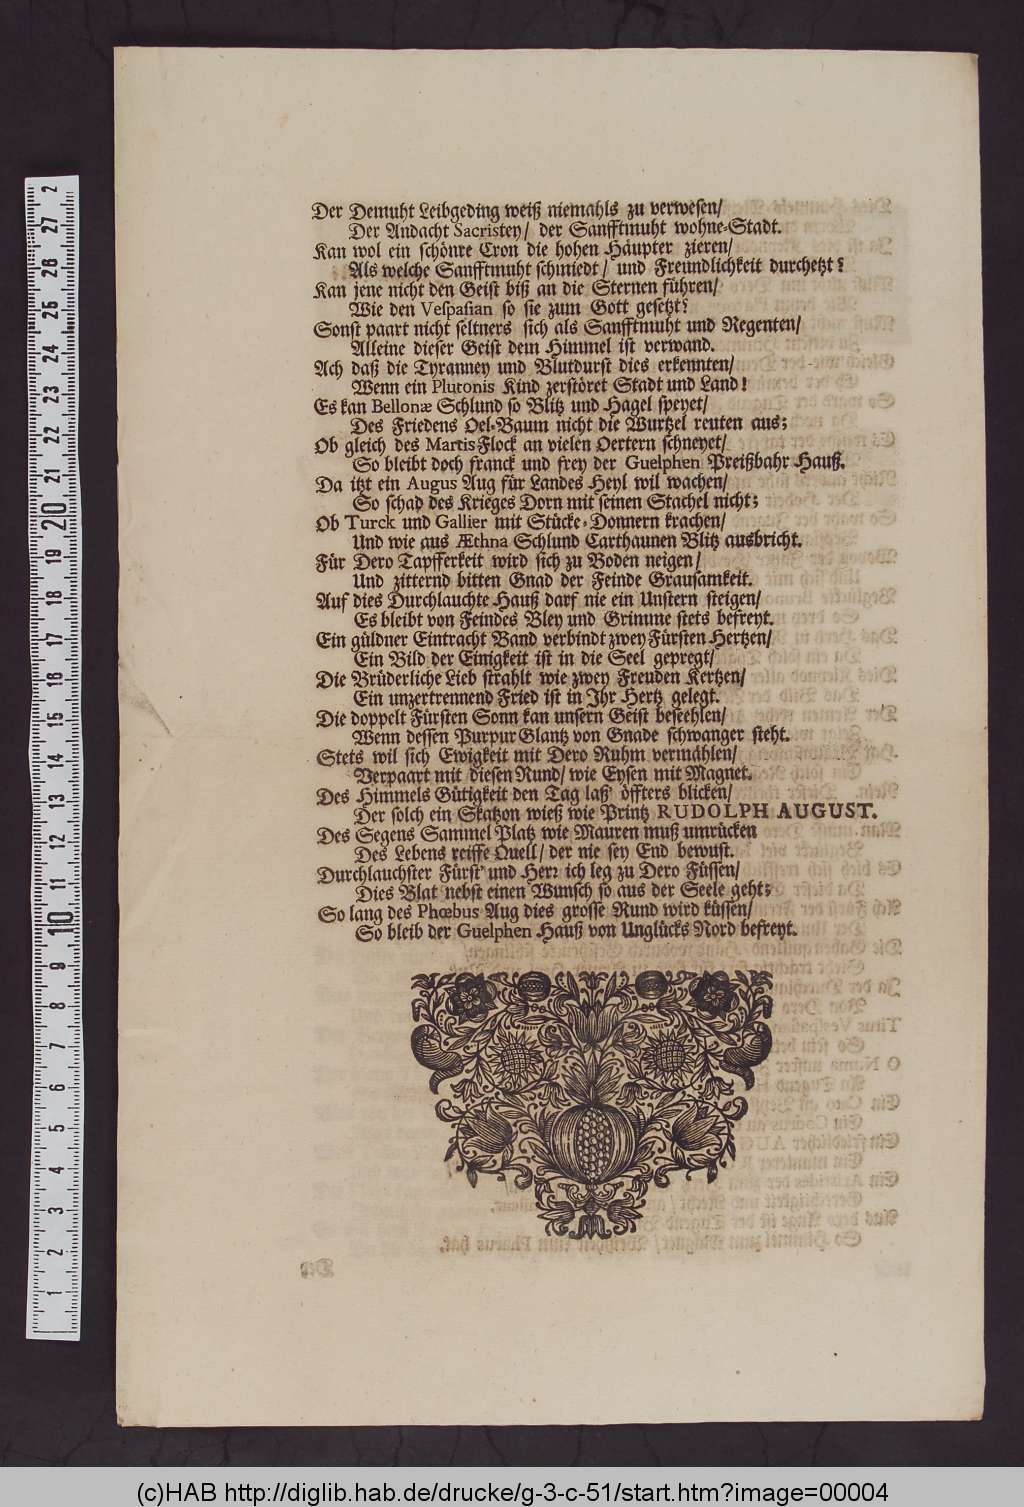 Der Demuht Leibgeding weiß niemahls zu verwesen/
Der Andacht Sacristey/ der Sanfftmuht wohne-Stadt.
Kan wol ein schönre Cron die hohen Häupter zieren/
Als welche Sanfftmuht schmiedt/ und Freundlichkeit durchetzt?
Kan jene nicht den Geist biß an die Sternen führen/
Wie den Vespasian so sie zum Gott gesetzt?
Sonst paart nicht seltners sich als Sanfftmuht und Regenten/
Alleine dieser Geist dem Himmel ist verwand.
Ach daß die Tyranney und Blutdurst dies erkennten/
Wenn ein Plutonis Kind zerstöret Stadt und Land!
Es kan Bellonæ Schlund so Blitz und Hagel speyet/
Des Friedens Oel-Baum nicht die Wurtzel reuten aus;
Ob gleich des Martis Flock an vielen Oertern schneyet/
So bleibt doch franck und frey der Guelphen Preißbahr Hauß.
Da itzt ein Augus Aug für Landes Heyl wil wachen/
So schad des Krieges Dorn mit seinen Stachel nicht;
Ob Turck und Gallier mit Stücke-Donnern krachen/
Und wie aus Æthna Schlund Carthaunen Blitz ausbricht.
Für Dero Tapfferkeit wird sich zu Boden neigen/
Und zitternd bitten Gnad der Feinde Grausamkeit.
Auf dies Durchlauchte Hauß darf nie ein Unstern steigen/
Es bleibt von Feindes Bley und Grimme stets befreyt.
Ein güldner Eintracht Band verbindt zwey Fürsten Hertzen/
Ein Bild der Einigkeit ist in die Seel gepregt/
Die Brüderliche Lieb strahlt wie zwey Freuden Kertzen/
Ein unzertrennend Fried ist in Ihr Hertz gelegt.
Die doppelt Fürsten Sonn kan unsern Geist beseehlen/
Wenn dessen Purpur Glantz von Gnade schwanger steht.
Stets wil sich Ewigkeit mit Dero Ruhm vermählen/
Verpaart mit diesen Rund/ wie Eysen mit Magnet.
Des Himmels Gütigkeit den Tag laß' öffters blicken/
Der solch ein Skatzon wieß wie Printz RUDOLPH AUGUST.
Des Segens Sammel Platz wie Mauren muß umrücken
Des Lebens reiffe Quell/ der nie sey End bewust.
Durchlauchster Fürst und Herr ich leg zu Dero Füssen/
Dies Blat nebst einen Wunsch so aus der Seele geht;
So lang des Phœbus Aug dies grosse Rund wird küssen/
So bleib der Guelphen Hauß von Unglücks Nord befreyt.
1 2 3 4 5 6 7 8 9 10 11 12 13 14 15 16 17 18 19 20 21 22 23 24 25 26 27 2
(c)HAB http://diglib.hab.de/drucke/g-3-c-51/start.htm?image=00004